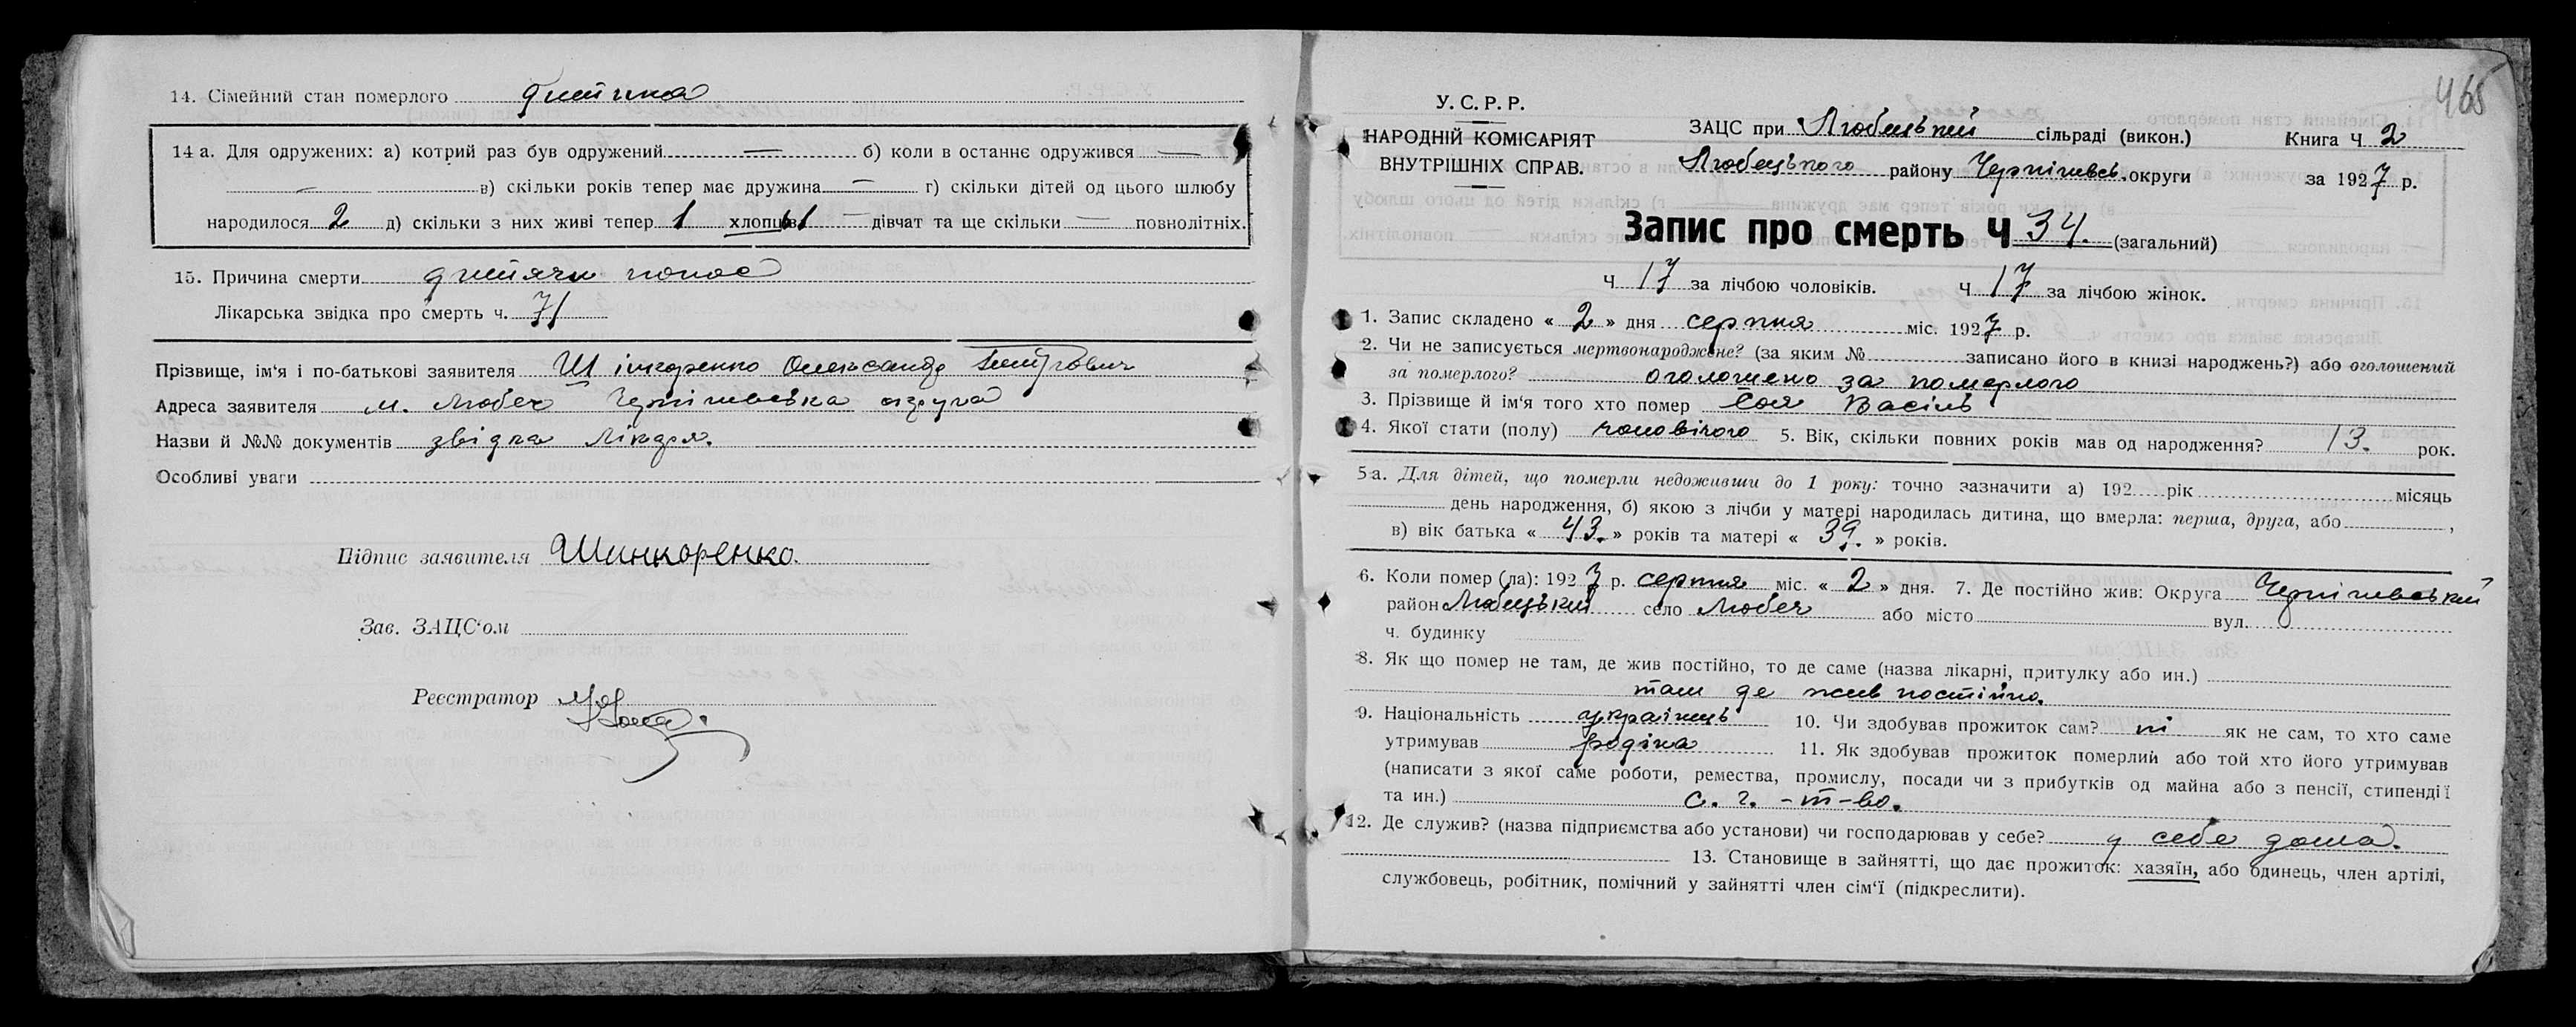 14. Сімейний стан померлого дитина
14 а. Для одружених: а) котрий раз був одружений — б) коли в останнє одружився —
— в) скільки років тепер має дружина — г) скільки дітей од цього шлюбу
народилося 2 д) скільки з них живі тепер 1 хлопців 1 — дівчат та ще скільки — повнолітніх.
15. Причина смерти дитячи понос
Лікарська звідка про смерть ч. 71
Прізвище, ім'я і по-батькові заявителя Шінкоренко Олександр
Адреса заявителя м. Любеч Чернігівська округа
Назви й №№ документів звідка лікаря.
Особливі уваги
Підпис заявителя Шинкоренко.
Зав. ЗАЦС'ом
Реєстратор
465
У. С. Р. Р.
НАРОДНІЙ КОМІСАРІЯТ
ВНУТРІШНІХ СПРАВ.
ЗАЦС при Любецькій сільраді (викон.) Книга Ч 2
Любецького району Чернігівсь. округи за 1927 р.
Запис про смерть Ч 34. (загальний)
Ч 17 за лічбою чоловіків. Ч 17 за лічбою жінок.
1. Запис складено « 2 » дня серпня міс. 1927 р.
2. Чи не записується мертвонароджене? (за яким № записано його в книзі народжень?) або оголошений
за померлого? оголошено за померлого
3. Прізвище й ім'я того хто помер Васіль
4. Якої стати (полу) чоловічого 5. Вік, скільки повних років мав од народження? 13. рок.
5 а. Для дітей, що померли недоживши до 1 року: точно зазначити а) 192 рік місяць
день народження, б) якою з лічби у матері народилась дитина, що вмерла: перша, друга, або ,
в) вік батька « 43. » років та матері « 39. » років.
6. Коли помер (ла): 1927 р. серпня міс. « 2 » дня. 7. Де постійно жив: Округа Чернігівський
район Любецький село Любеч або місто вул.
ч. будинку
8. Як що помер не там, де жив постійно, то де саме (назва лікарні, притулку або ин.)
там де жив постійно.
9. Національність українець 10. Чи здобував прожиток сам? ні як не сам, то хто саме
утримував родіна 11. Як здобував прожиток померлий або той хто його утримував
(написати з якої саме роботи, ремества, промислу, посади чи з прибутків од майна або з пенсії, стипендії
та ин.) с. г. -т-во.
12. Де служив? (назва підприємства або установи) чи господарював у себе? у себе дома.
13. Становище в зайнятті, що дає прожиток: хазяїн, або одинець, член артілі,
службовець, робітник, помічний у зайнятті член сім'ї (підкреслити).